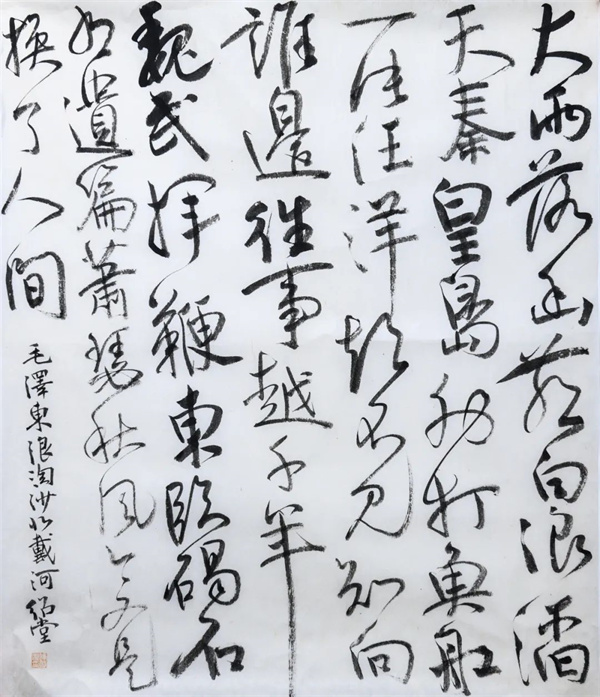 大雨落幽燕白浪滔
天秦皇島外打魚船
一片汪洋都不見知向
誰邊往事越千年
魏武揮鞭東臨碣石
有遺篇蕭瑟秋風今又是
換了人間
毛澤東浪淘沙北戴河